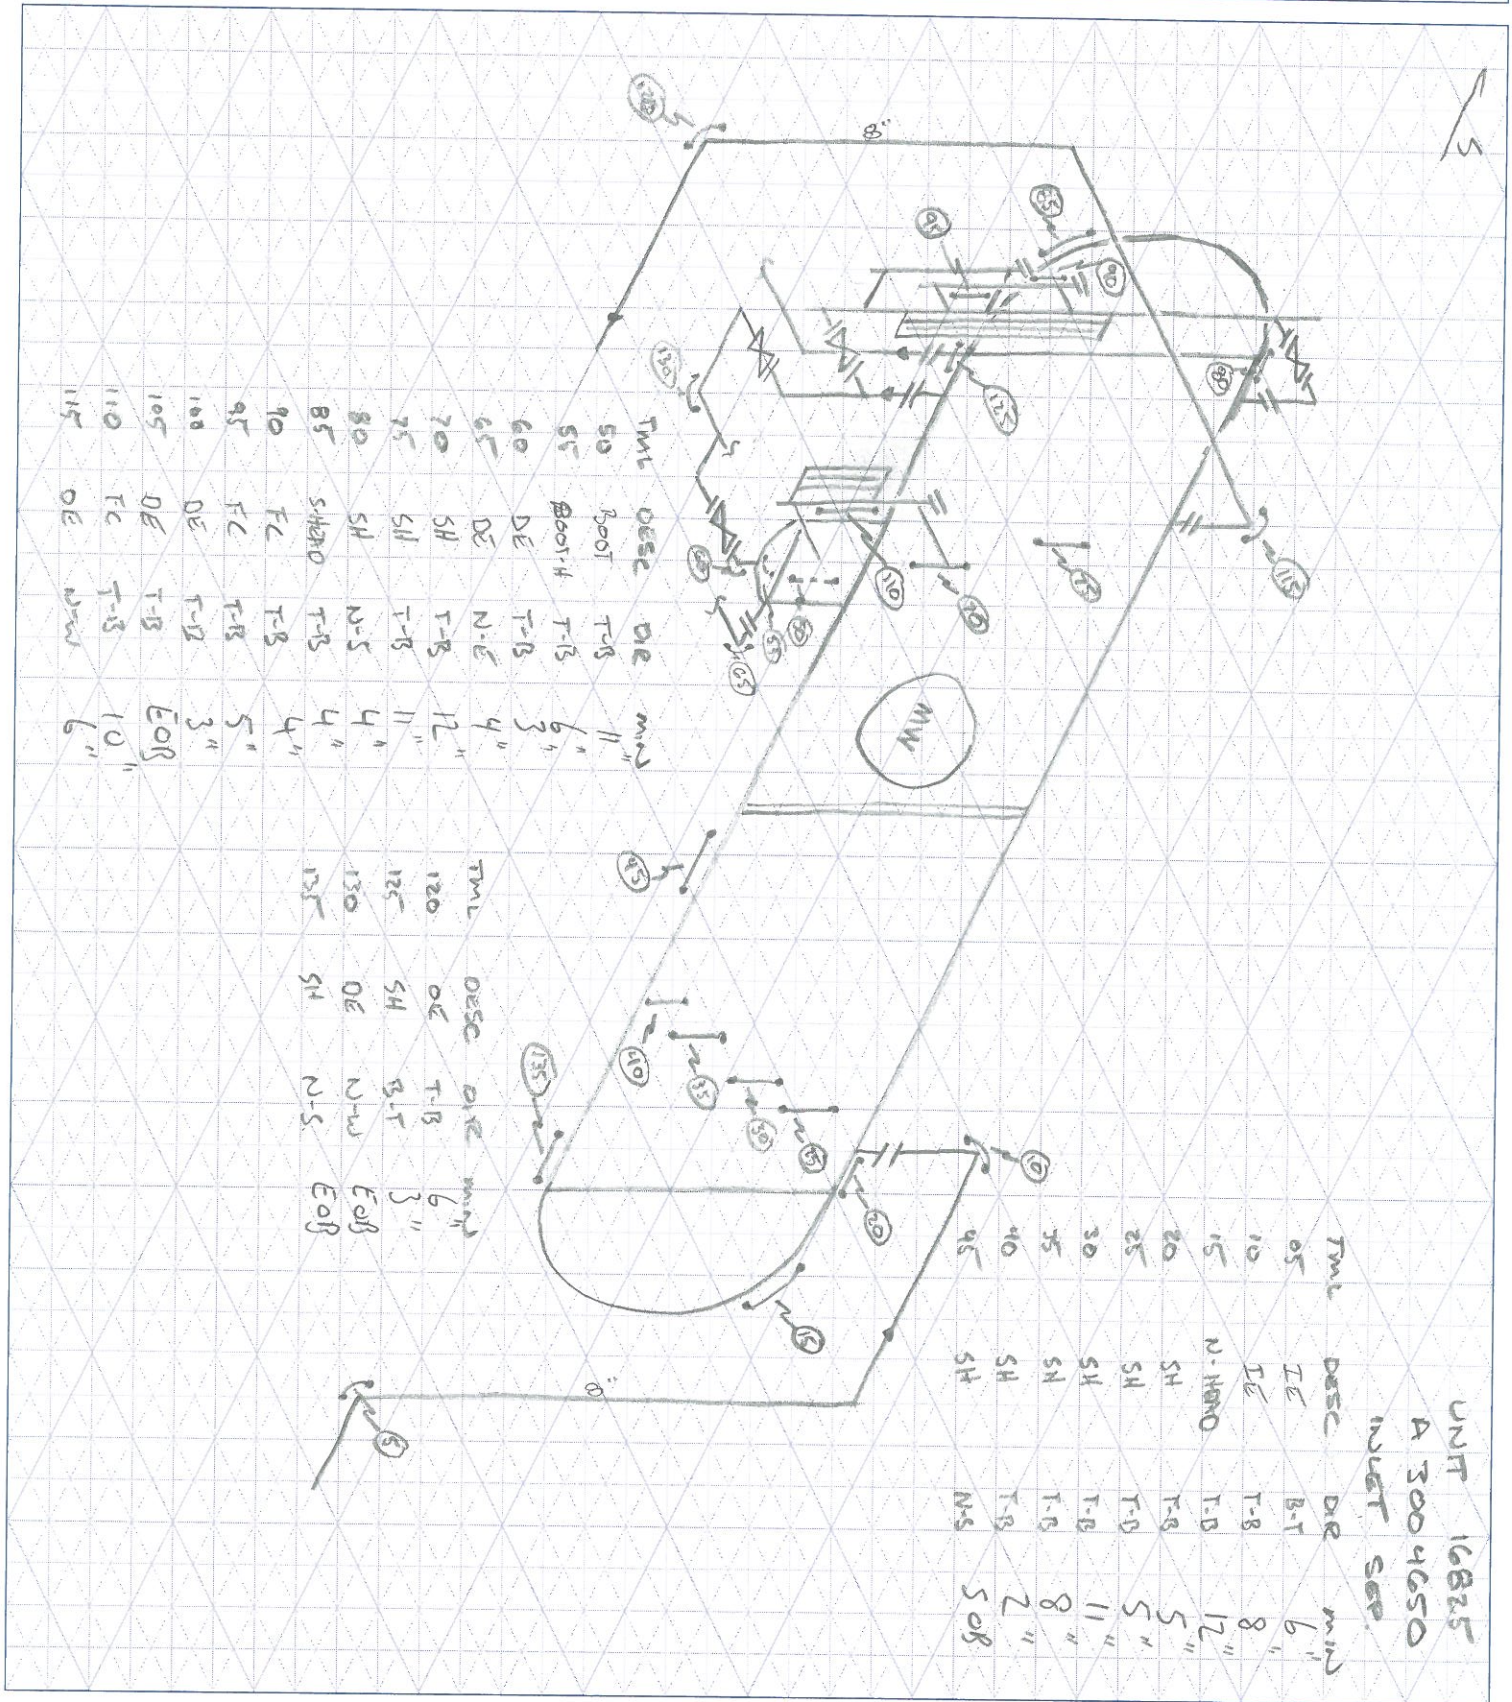 UNIT 16825
A 3004650
INLET SEP.
TML DESC DIR MIN
05 IE B-T 6"
10 IE T-B 8"
15 N-HEAD T-B 12"
20 SH T-B 5"
25 SH T-B 5"
30 SH T-B 11"
35 SH T-B 8"
40 SH T-B 2"
45 SH N-S SOB
TML DESC DIR MIN
50 BOOT T-B 11"
55 BOOT-H T-B 6"
60 DE T-B 3"
65 DE N-E 4"
70 SH T-B 12"
75 SH T-B 11"
80 SH N-S 4"
85 S-HEAD T-B 4"
90 FC T-B 4"
95 FC T-B 5"
100 DE T-B 3"
105 DE T-B EOB
110 FC T-B 10"
115 OE N-W 6"
TML DESC DIR MIN
120 OE T-B 6"
125 SH B-T 3"
130 DE N-W EOB
135 SH N-S EOB
S
8"
120
85
95
90
80
125
115
130
110
70
75
60
50
55
65
MW
45
40
35
30
25
135
10
20
15
8"
5